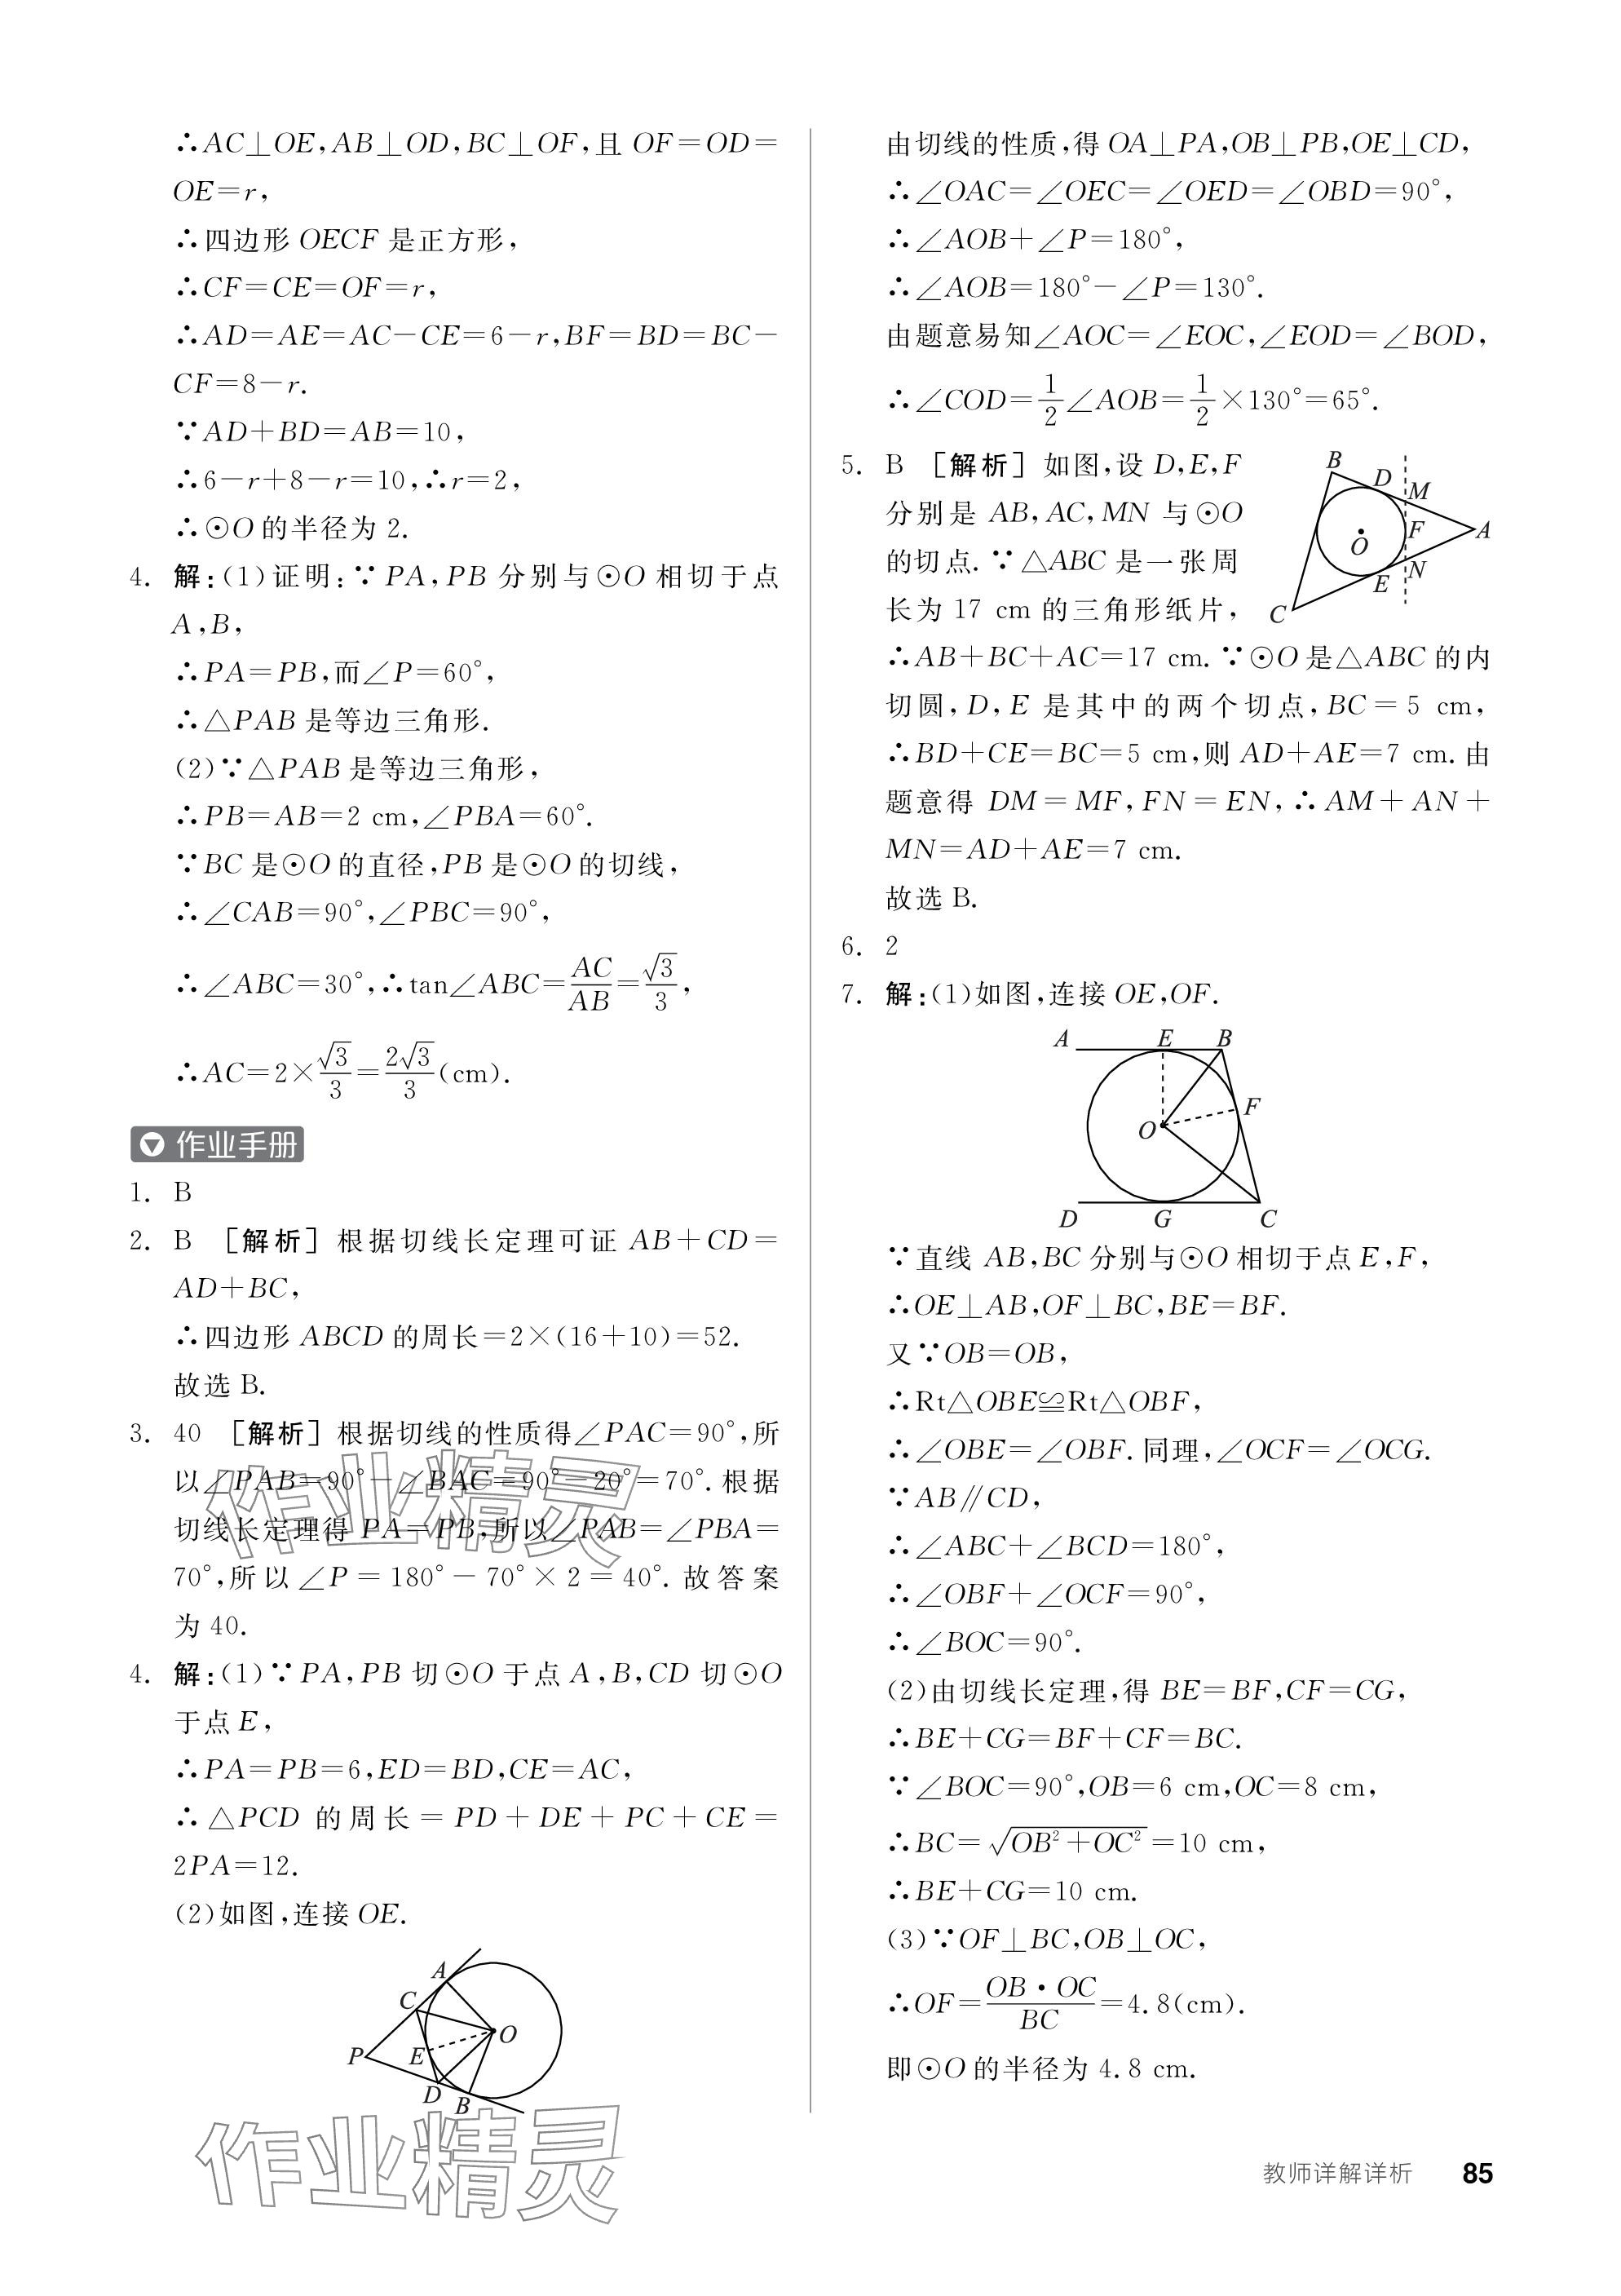 ∴AC⊥OE,AB⊥OD,BC⊥OF,且 OF=OD=
OE=r,
∴四边形 OECF 是正方形,
∴CF=CE=OF=r,
∴AD=AE=AC-CE=6-r,BF=BD=BC-
CF=8-r.
∵AD+BD=AB=10,
∴6-r+8-r=10,∴r=2,
∴⊙O的半径为 2.
4. 解:(1)证明:∵PA,PB 分别与⊙O 相切于点
A,B,
∴PA=PB,而∠P=60°,
∴△PAB 是等边三角形.
(2)∵△PAB 是等边三角形,
∴PB=AB=2 cm,∠PBA=60°.
∵BC 是⊙O 的直径,PB 是⊙O 的切线,
∴∠CAB=90°,∠PBC=90°,
∴∠ABC=30°,∴tan∠ABC=AC/AB=√3/3,
∴AC=2×√3/3=2√3/3(cm).
作业手册
1. B
2. B [解析] 根据切线长定理可证 AB+CD=
AD+BC,
∴四边形 ABCD 的周长=2×(16+10)=52.
故选 B.
3. 40 [解析] 根据切线的性质得∠PAC=90°,所
以∠PAB=90°-∠BAC=90°-20°=70°.根据
切线长定理得 PA=PB,所以∠PAB=∠PBA=
70°,所以∠P=180°-70°×2=40°.故答案
为 40.
4. 解:(1)∵PA,PB 切⊙O 于点 A,B,CD 切⊙O
于点E,
∴PA=PB=6,ED=BD,CE=AC,
∴△PCD 的周长=PD+DE+PC+CE=
2PA=12.
(2)如图,连接 OE.
A
C
O
P
E
D
B
由切线的性质,得 OA⊥PA,OB⊥PB,OE⊥CD,
∴∠OAC=∠OEC=∠OED=∠OBD=90°,
∴∠AOB+∠P=180°,
∴∠AOB=180°-∠P=130°.
由题意易知∠AOC=∠EOC,∠EOD=∠BOD,
∴∠COD=1/2∠AOB=1/2×130°=65°.
5. B [解析] 如图,设 D,E,F
分别是 AB,AC,MN 与⊙O
的切点.∵△ABC 是一张周
长为 17 cm 的三角形纸片,
B
D
M
F
A
O
E
N
C
∴AB+BC+AC=17 cm.∵⊙O是△ABC 的内
切圆,D,E 是其中的两个切点,BC=5 cm,
∴BD+CE=BC=5 cm,则 AD+AE=7 cm.由
题意得 DM=MF,FN=EN,∴AM+AN+
MN=AD+AE=7 cm.
故选 B.
6. 2
7. 解:(1)如图,连接 OE,OF.
A E B
F
O
D G C
∵直线 AB,BC 分别与⊙O 相切于点 E,F,
∴OE⊥AB,OF⊥BC,BE=BF.
又∵OB=OB,
∴Rt△OBE≌Rt△OBF,
∴∠OBE=∠OBF.同理,∠OCF=∠OCG.
∵AB∥CD,
∴∠ABC+∠BCD=180°,
∴∠OBF+∠OCF=90°,
∴∠BOC=90°.
(2)由切线长定理,得 BE=BF,CF=CG,
∴BE+CG=BF+CF=BC.
∵∠BOC=90°,OB=6 cm,OC=8 cm,
∴BC=√(OB²+OC²)=10 cm,
∴BE+CG=10 cm.
(3)∵OF⊥BC,OB⊥OC,
∴OF=OB·OC/BC=4.8(cm).
即⊙O的半径为 4.8 cm.
作业精灵
作业精灵
教师详解详析 85